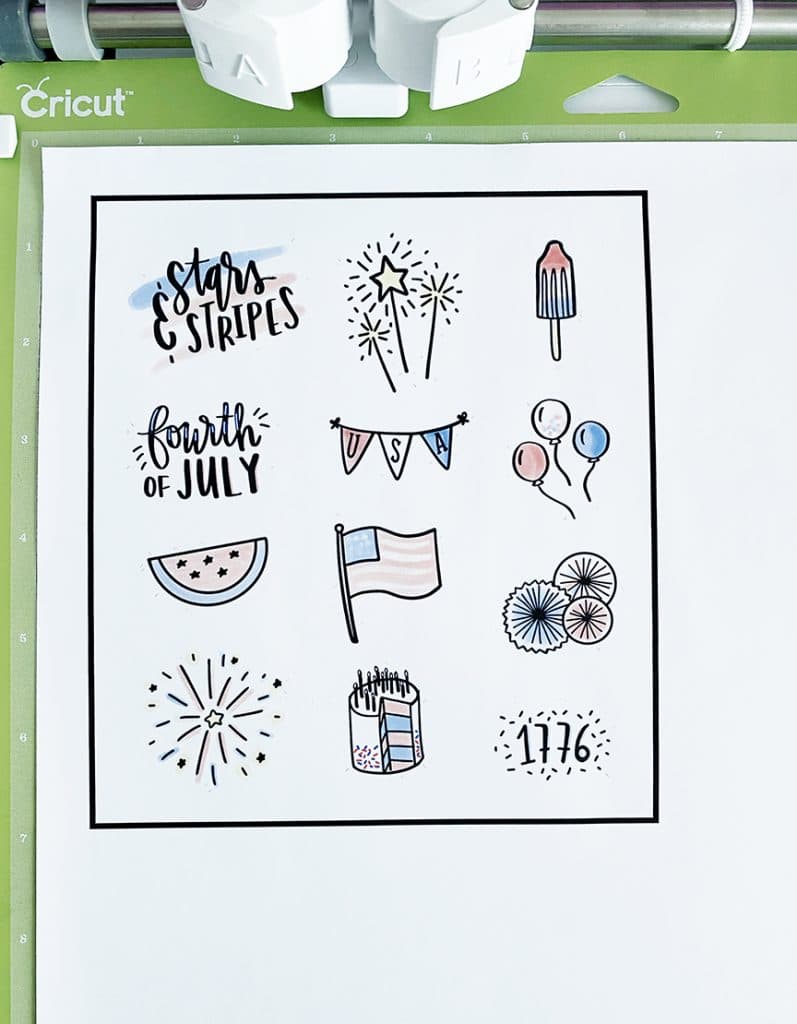 A B
Cricut™
0 1 2 3 4 5 6 7
1
2
3
4
5
6
7
8
Stars
& STRIPES
fourth
OF JULY
USA
1776